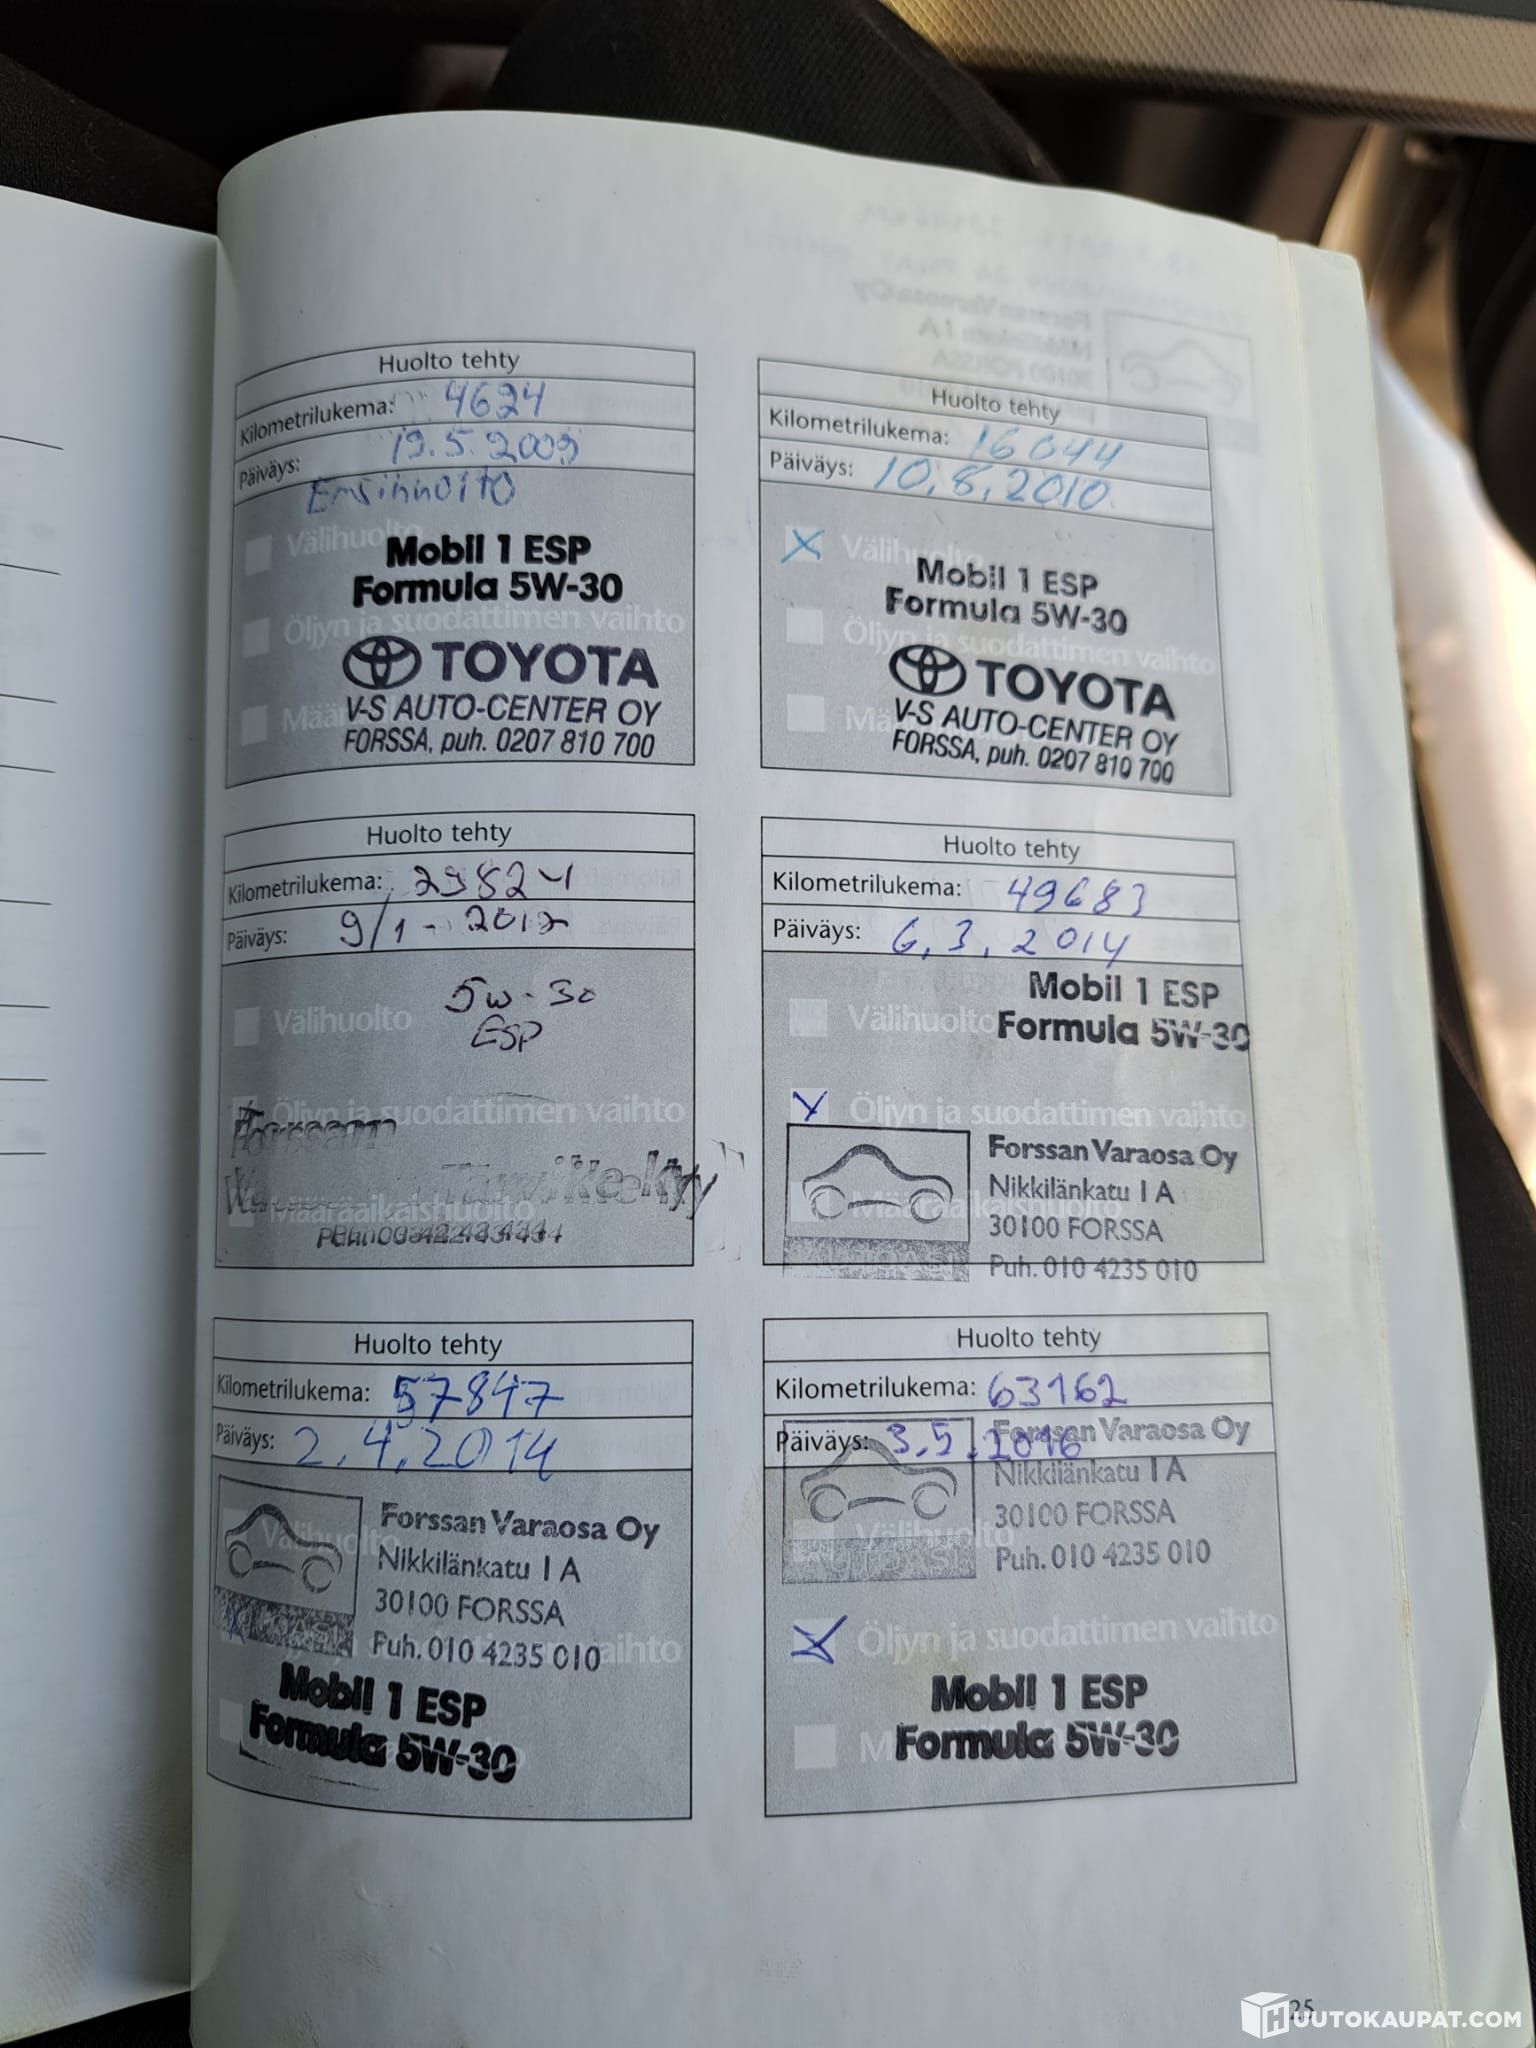 Huolto tehty
Kilometrilukema: 4624
Päiväys: 19.5.2009
Ensihuolto
Välihuolto
Mobil 1 ESP
Formula 5W-30
Öljyn ja suodattimen vaihto
TOYOTA
V-S AUTO-CENTER OY
FORSSA, puh. 0207 810 700
Huolto tehty
Kilometrilukema: 16044
Päiväys: 10.8.2010
Välihuolto
Mobil 1 ESP
Formula 5W-30
Öljyn ja suodattimen vaihto
TOYOTA
V-S AUTO-CENTER OY
FORSSA, puh. 0207 810 700
Huolto tehty
Kilometrilukema: 29824
Päiväys: 9/1-2012
5W-30
ESP
Välihuolto
Öljyn ja suodattimen vaihto
Forssan
Määräaikaishuolto
Huolto tehty
Kilometrilukema: 49683
Päiväys: 6.3.2014
Mobil 1 ESP
Välihuolto
Formula 5W-30
Öljyn ja suodattimen vaihto
Forssan Varaosa Oy
Nikkilänkatu 1 A
Määräaikaishuolto
30100 FORSSA
Puh. 010 4235 010
Huolto tehty
Kilometrilukema: 57847
Päiväys: 2.4.2014
Forssan Varaosa Oy
Välihuolto
Nikkilänkatu 1 A
30100 FORSSA
Puh. 010 4235 010
vaihto
Mobil 1 ESP
Formula 5W-30
Huolto tehty
Kilometrilukema: 63162
Päiväys: 3.5.2016
Forssan Varaosa Oy
Nikkilänkatu 1 A
30100 FORSSA
Välihuolto
Puh. 010 4235 010
Öljyn ja suodattimen vaihto
Mobil 1 ESP
Formula 5W-30
25
HUUTOKAUPAT.COM